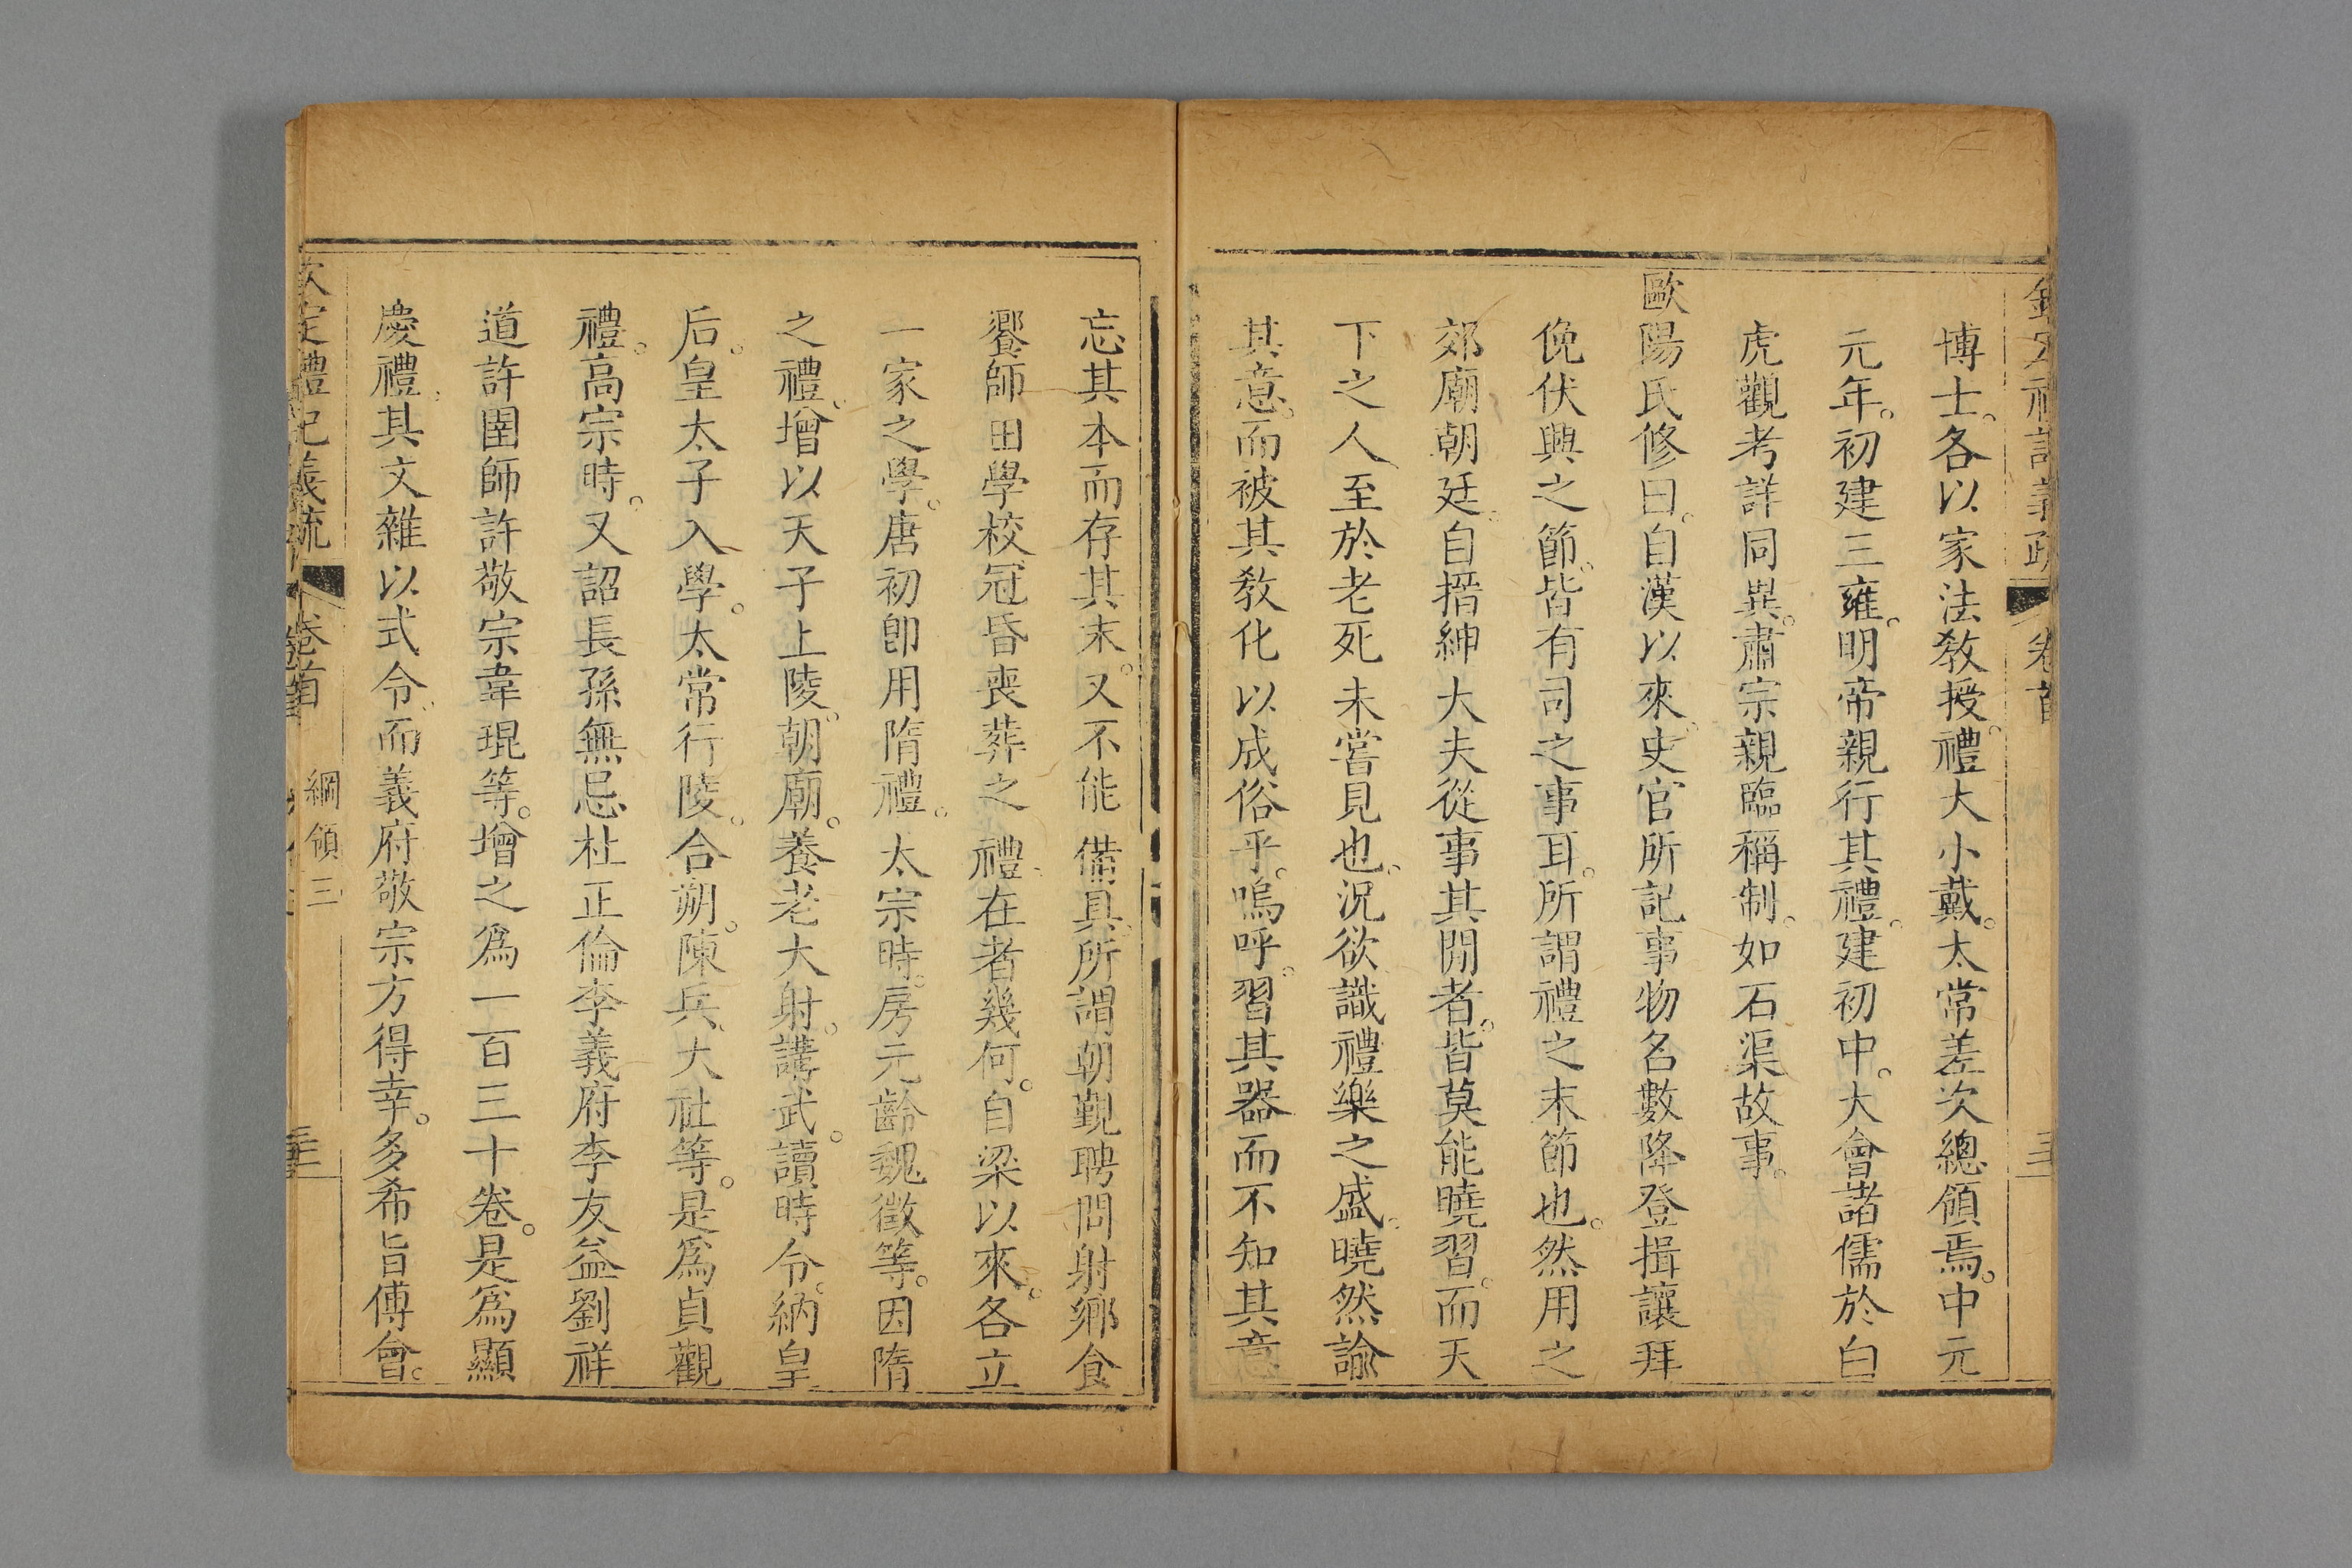 博士。各以家法敎授。禮大小戴。太常差次總領焉。中元
元年。初建三雍。明帝親行其禮。建初中。大會諸儒於白
虎觀考詳同異。肅宗親臨稱制。如石渠故事。
歐陽氏修曰。自漢以來。史官所記事物名數降登揖讓拜
俛伏興之節。皆有司之事耳。所謂禮之末節也。然用之
郊廟朝廷。自搢紳大夫從事其閒者。皆莫能曉習。而天
下之人。至於老死未嘗見也。況欲識禮樂之盛。曉然諭
其意。而被其敎化以成俗乎。嗚呼。習其器而不知其意
忘其本而存其末。又不能備具。所謂朝覲聘問射鄉食
饗師田學校冠昏喪葬之禮。在者幾何。自梁以來。各立
一家之學。唐初卽用隋禮。太宗時。房元齡魏徵等。因隋
之禮。增以天子上陵。朝廟。養老大射。講武。讀時令。納皇
后。皇太子入學。太常行陵。合朔。陳兵。大社等。是爲貞觀
禮。高宗時。又詔長孫無忌杜正倫李義府李友益劉祥
道許圉師許敬宗韋琨等。增之爲一百三十卷。是爲顯
慶禮。其文雜以式令。而義府敬宗方得幸。多希旨傅會。
欽定禮記義疏
卷首
綱領三